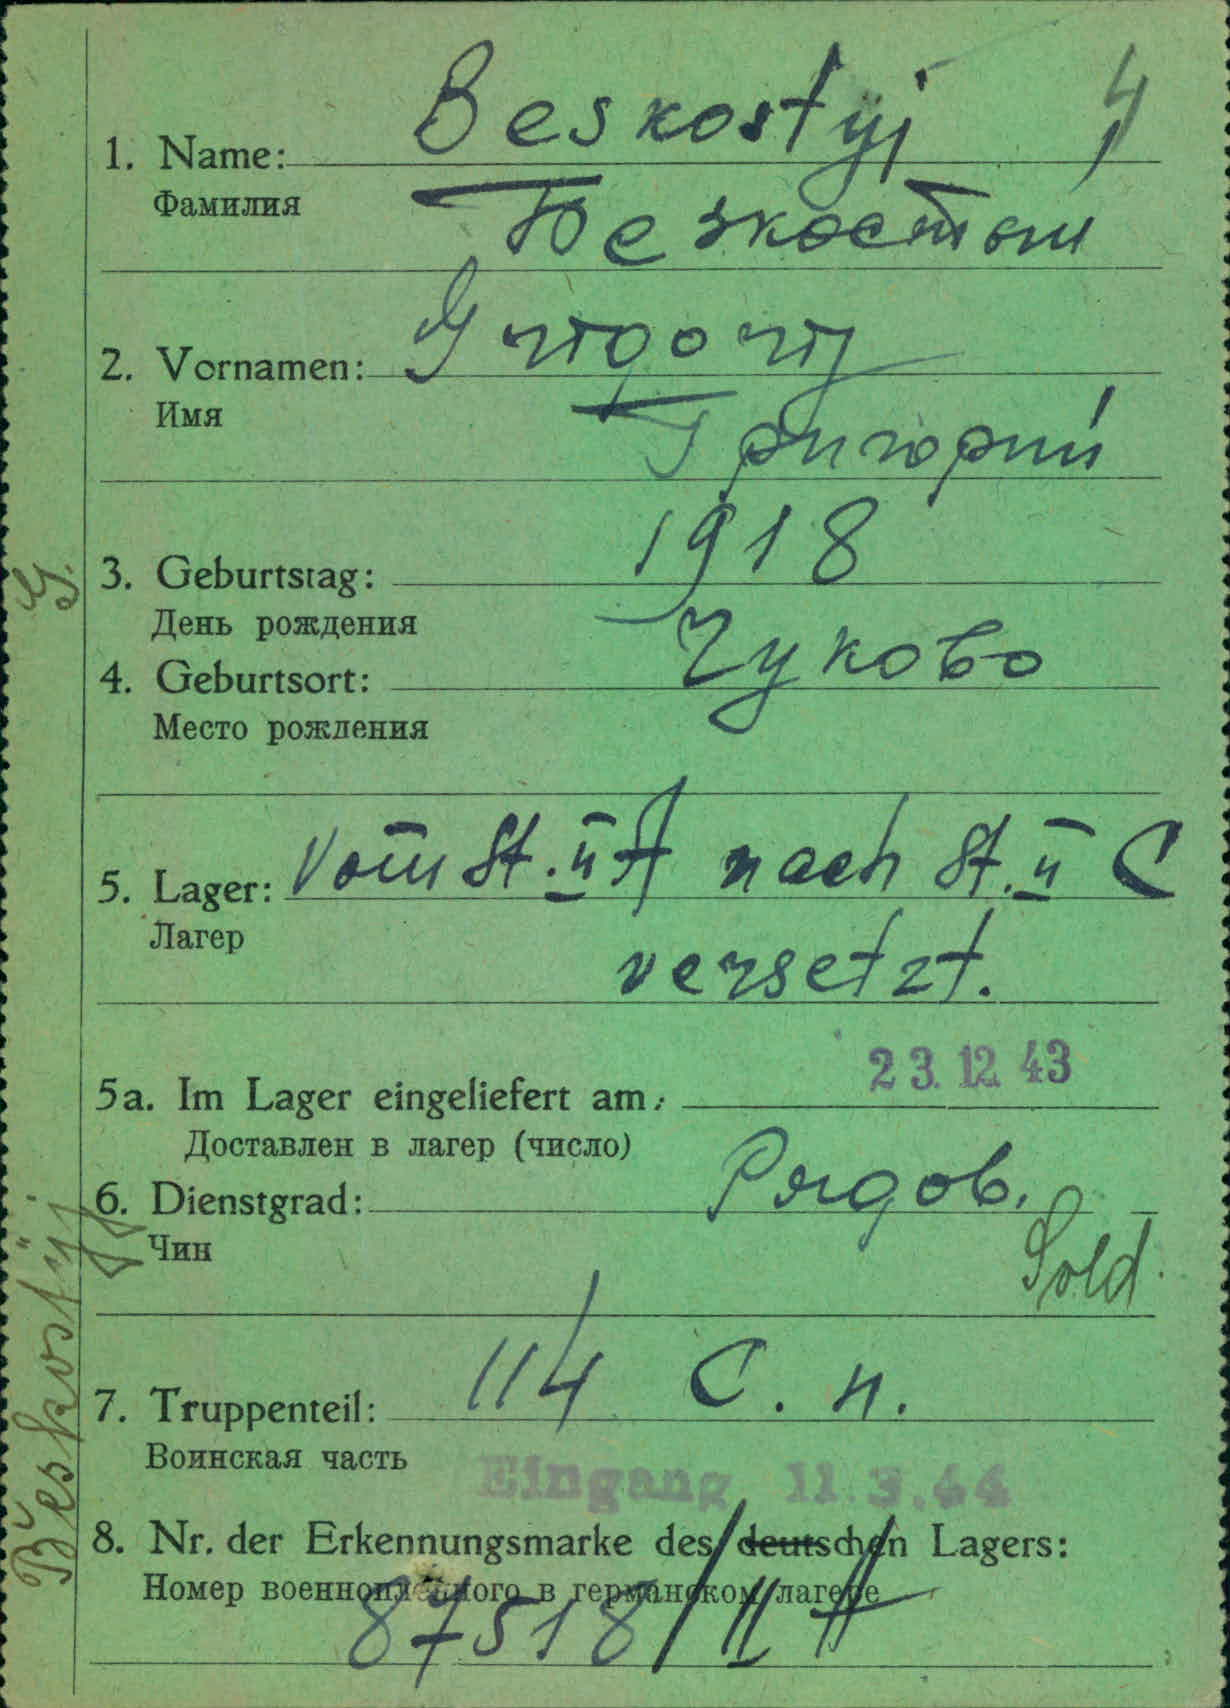 Beskostyj 4
1. Name:
Фамилия
Безкостый
2. Vornamen: Grigorij
Имя
Григорий
1918
3. Geburtstag:
День рождения
4. Geburtsort: Чуково
Место рождения
5. Lager: Vom St. II A nach St. II C
Лагер
versetzt.
23. 12. 43
5a. Im Lager eingeliefert am:
Доставлен в лагер (число)
6. Dienstgrad: Рядов.
Чин
Sold.
7. Truppenteil: 114 С. п.
Воинская часть
Eingang 11.3.44
8. Nr. der Erkennungsmarke des deutschen Lagers:
Номер военнопленного в германском лагере
87518 / II A
Beskostÿj G.